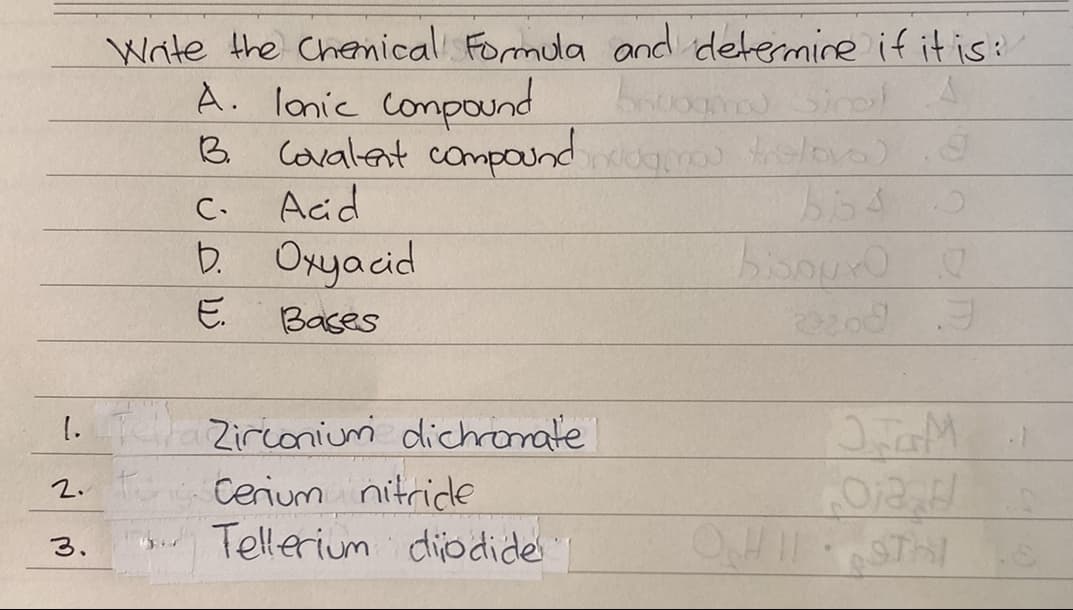 Write the Chemical Formula and determine if it is:
A. Ionic Compound
B. Covalent compound
C. Acid
D. Oxyacid
E. Bases
1. Zirconium dichromate
2. Cerium nitride
3. Tellerium diiodide